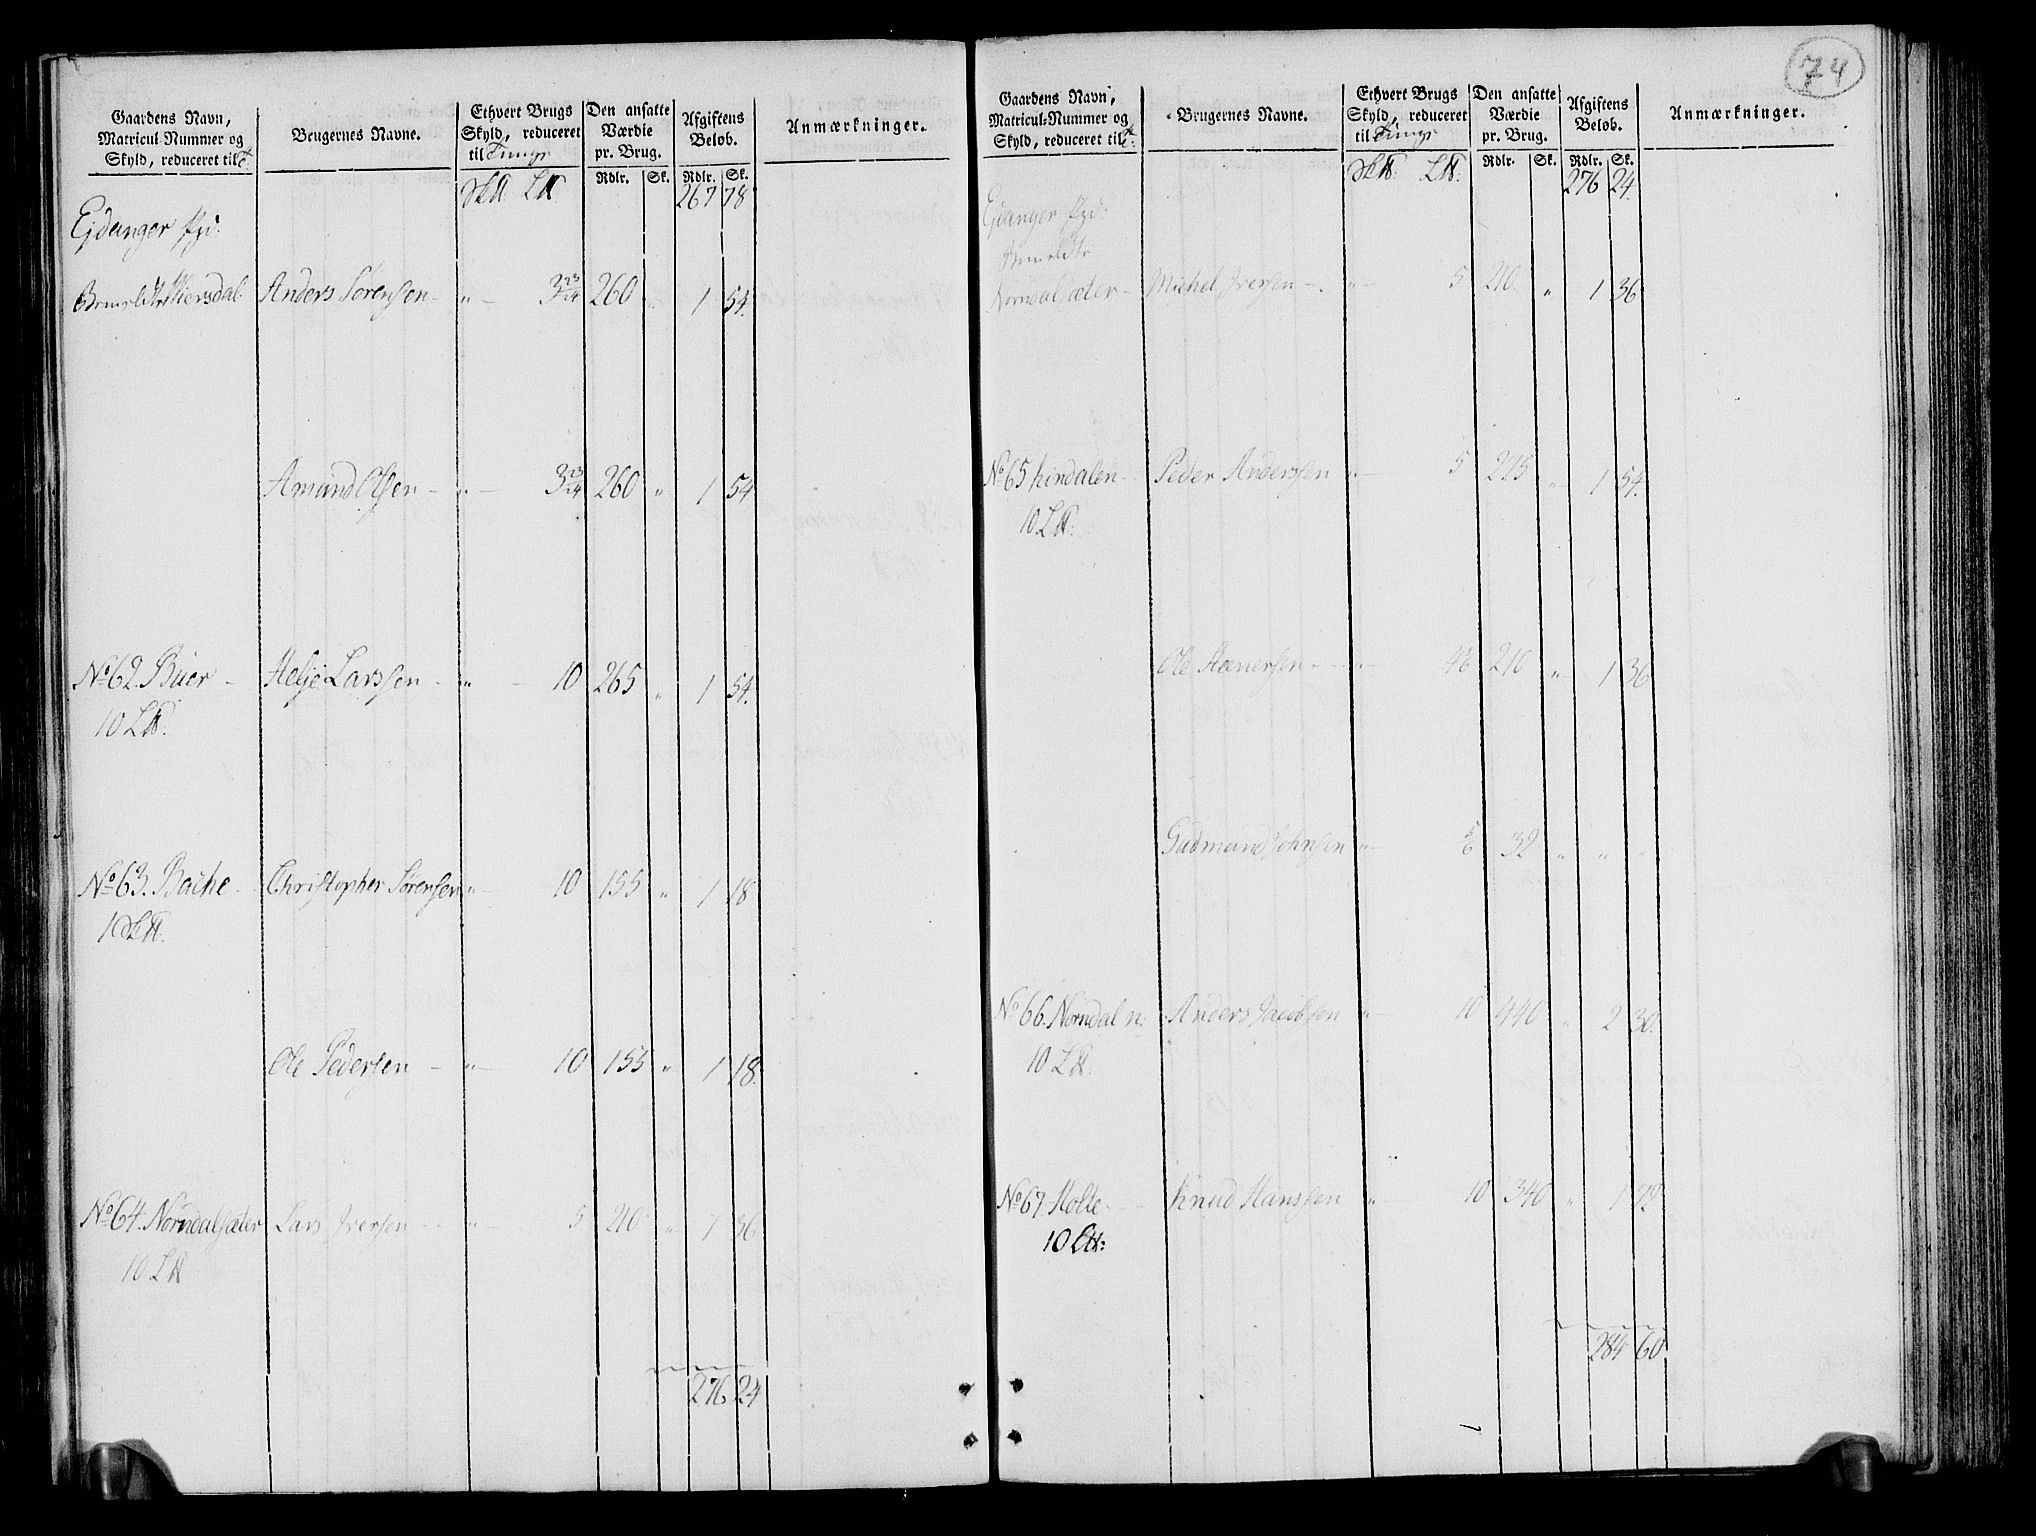 Gaardens Navn,
Matricul-Nummer og
Skyld, reduceret til
Brugernes Navne.
Ethvert Brugs
Skyld, reduceret
til Tunge
Den ansatte
Værdie
pr. Brug.
Afgiftens
Beløb.
Anmærkninger.
Rdlr. Sk. Rdlr. Sk.
267 78
Ejdanger
Anders Sørensen - " - 3 23/24 260 " 1 54.
Amund Olsen - " - 3 23/24 260 " 1 54
No 62. Buer - Helje Larssen - " - 10 265 " 1 54.
10 L℔.
No 63. Bache - Christopher Sørensen " - 10 155 " 1 18
Ole Pedersen - " - 10 155 " 1 18.
No 64. Norndalsæter Lars Iversen - " - 5 210 " 1 36
10 L℔
276 24
74
Gaardens Navn,
Matricul-Nummer og
Skyld, reduceret til
Brugernes Navne.
Ethvert Brugs
Skyld, reduceret
til Tunge
Den ansatte
Værdie
pr. Brug.
Afgiftens
Beløb.
Anmærkninger.
Rdlr. Sk. Rdlr. Sk.
276 24.
Ejdanger
Norndalsæter - Michel Iversen - " 5 210 " 1 36
No 65 hindalen - Peder Anderssen " - 5 275 " 1 54.
10 L℔.
Ole - " 210 " 1 36
Gudmund Johnsen " - 32 " " "
No 66. Norndal n: Anders Jacobsen " - 10 440 " 2 30.
10 L℔.
No 67. Holte - Knud Hanssen " - 10 340 " 1
10 L℔:
284 60.